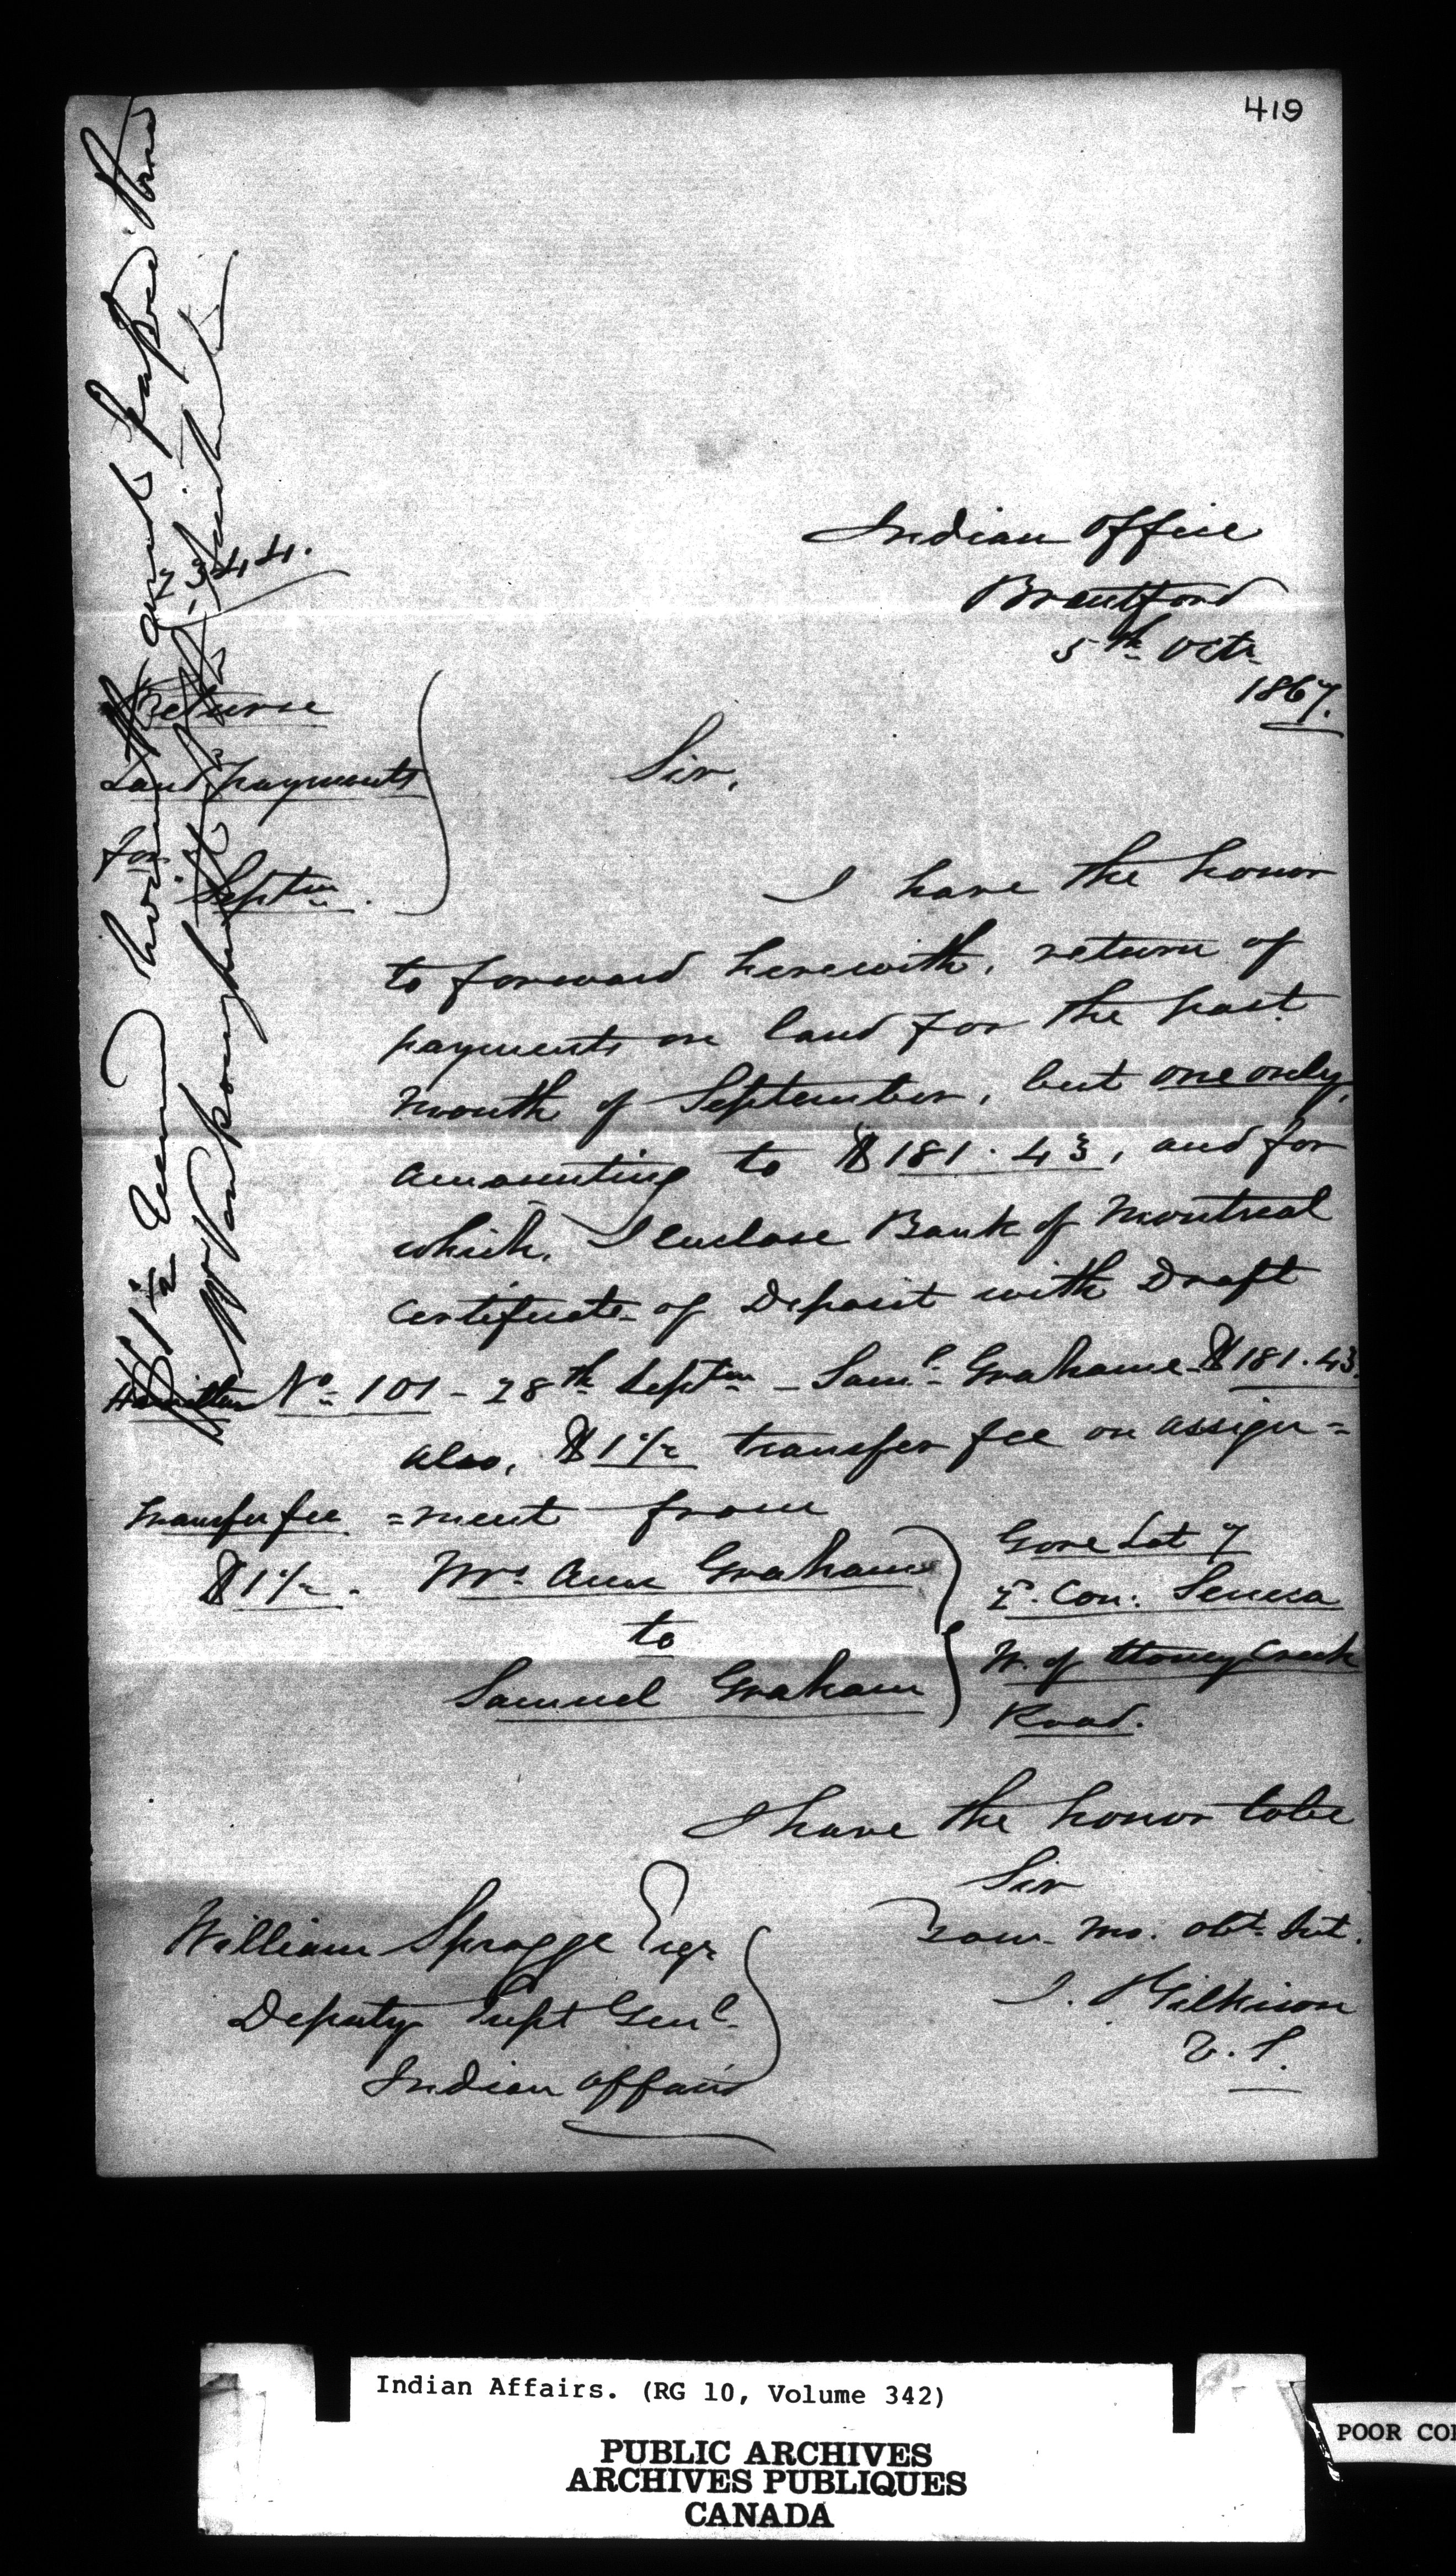 419
Indian Office
Brantford
5th Octr
1867.
2344.
Return
Land payments
for
Septm.
Sir,
I have the honor
to forward herewith, return of
payments on land for the past
month of September, but one only,
amounting to $181.43, and for
which, I enclose Bank of Montreal
certificate of Deposit with Draft
Hamilton No 101 - 28th Septm - Saml Grahame $181.43
also, $1 transfer fee on assign=
Transfer fee =ment from
$1 Mrs Ann Graham
to
Samuel Graham
Gore Lot 7
Con. Seneca
W. of Stoney Creek
Road.
I have the honor to be
Sir
Your Mo. obt. Svt.
J. Gilkison
V.S.
William Spragge Esqr
Deputy Supt Genl
Indian Affairs
Indian Affairs. (RG 10, Volume 342)
PUBLIC ARCHIVES
ARCHIVES PUBLIQUES
CANADA
POOR